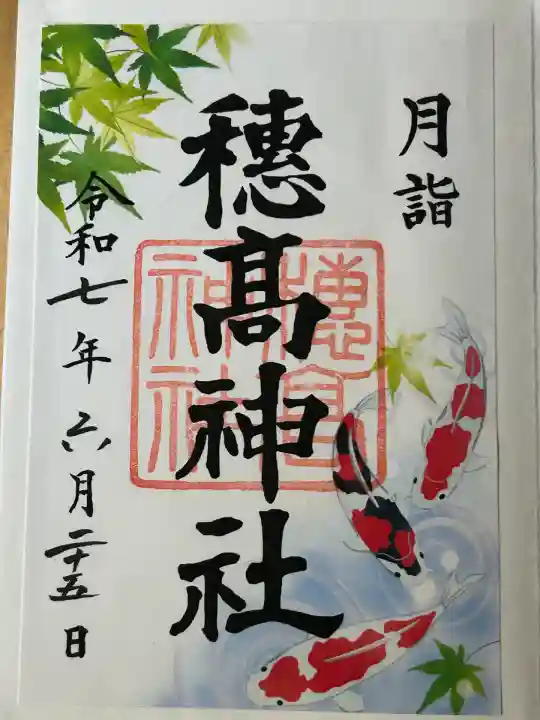 月詣
穂髙神社
穂髙神社
令和七年六月二十五日